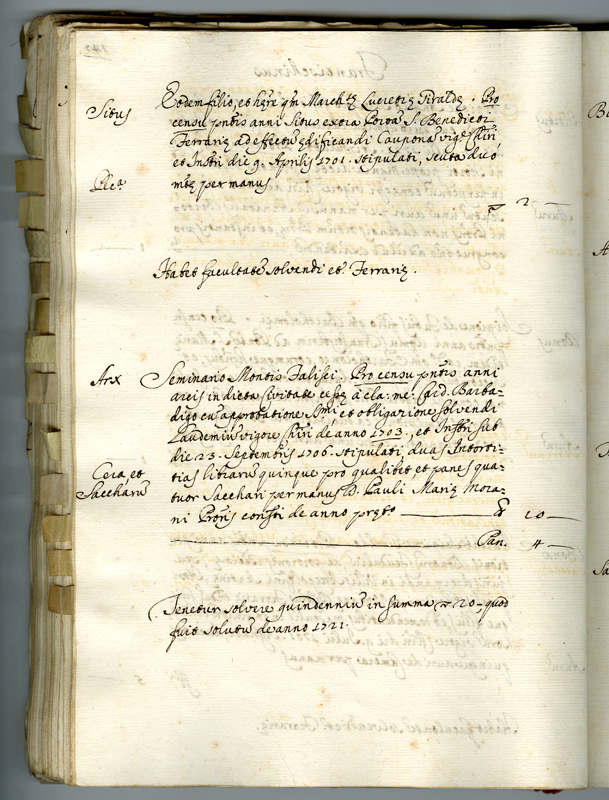 Situs
Eidem filio, et hęre qm March. Lucretię Piraldę. Pro
censu pntis anni Situs extra Portā S. Benedicti
Ferrarię ad effectū ędificandi Cauponā vige Chiri
et Instri die 9. Aprilis 1701. stipulati, scuta duo
mtę per manus
▽ 2 —
Habet facultatē solvendi et Ferrarię.
Arx
Seminario Montis Falisci. Pro censu pntis anni
arcis in dicta Civitate à cla: me: Card. Barba-
digo cū approbatione et obligatione solvendi
Laudemiū vigore Chiri de anno 1703., et Instri sub
die 23. Septembris 1706. stipulati, duas Intorti-
Cera et
tias librarū quinque pro qualibet, et panes qua-
Saccharū
tuor Sacchari per manus D. Pauli Marię Mora-
ni Proris consti de anno pręto
10 —
Pan. 4 —
Tenetur solvere quindenniū in summa ▽ 20 – quod
fuit solutū de anno 1721.